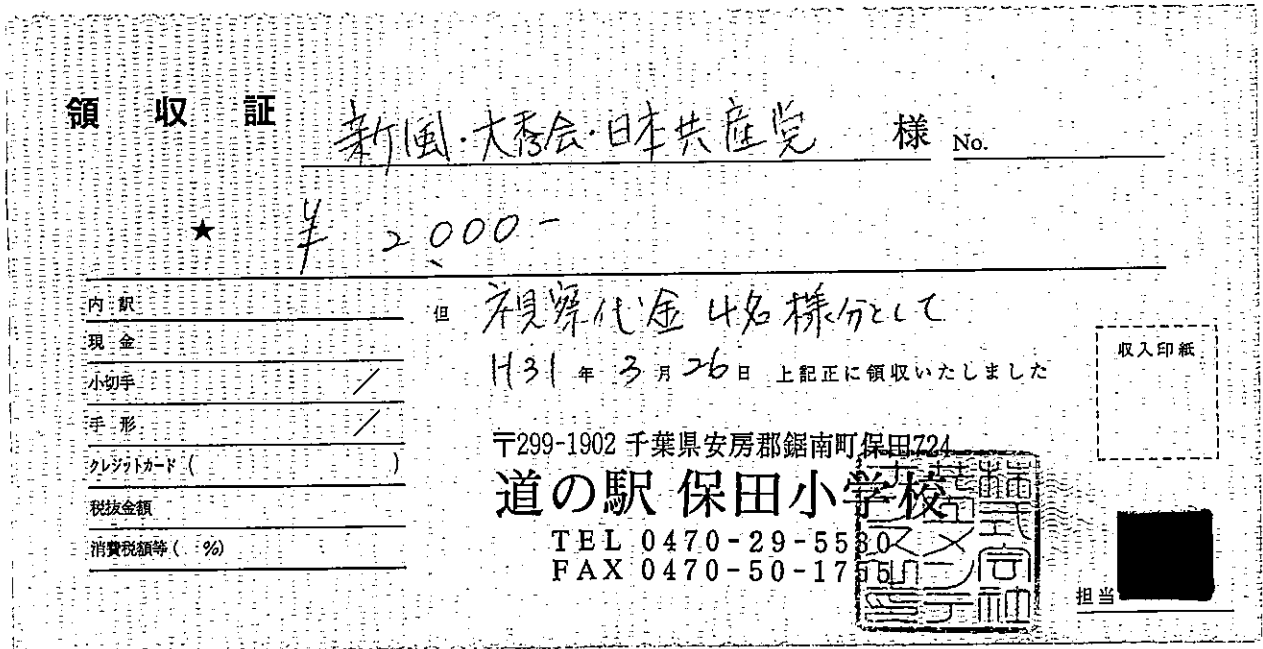 領 収 証 新風・大秀会・日本共産党 様 No.
★ ¥ 2,000-
内 訳
現 金
小切手
手 形
クレジットカード ( )
税抜金額
消費税額等 ( %)
但 視察代金 4名様分として
H31 年 3 月 26 日 上記正に領収いたしました
収入印紙
〒299-1902 千葉県安房郡鋸南町保田724
道の駅 保田小学校
TEL 0470-29-5530
FAX 0470-50-1755
株式会社
担当